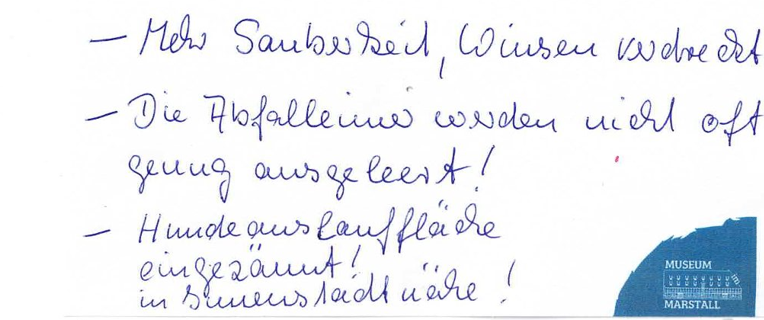 – Mehr Sauberkeit, Winsen verdreckt
– Die Abfalleimer werden nicht oft
genug ausgeleert!
– Hundeauslauffläche
eingezäunt!
in Innenstadtnähe!
MUSEUM
MARSTALL